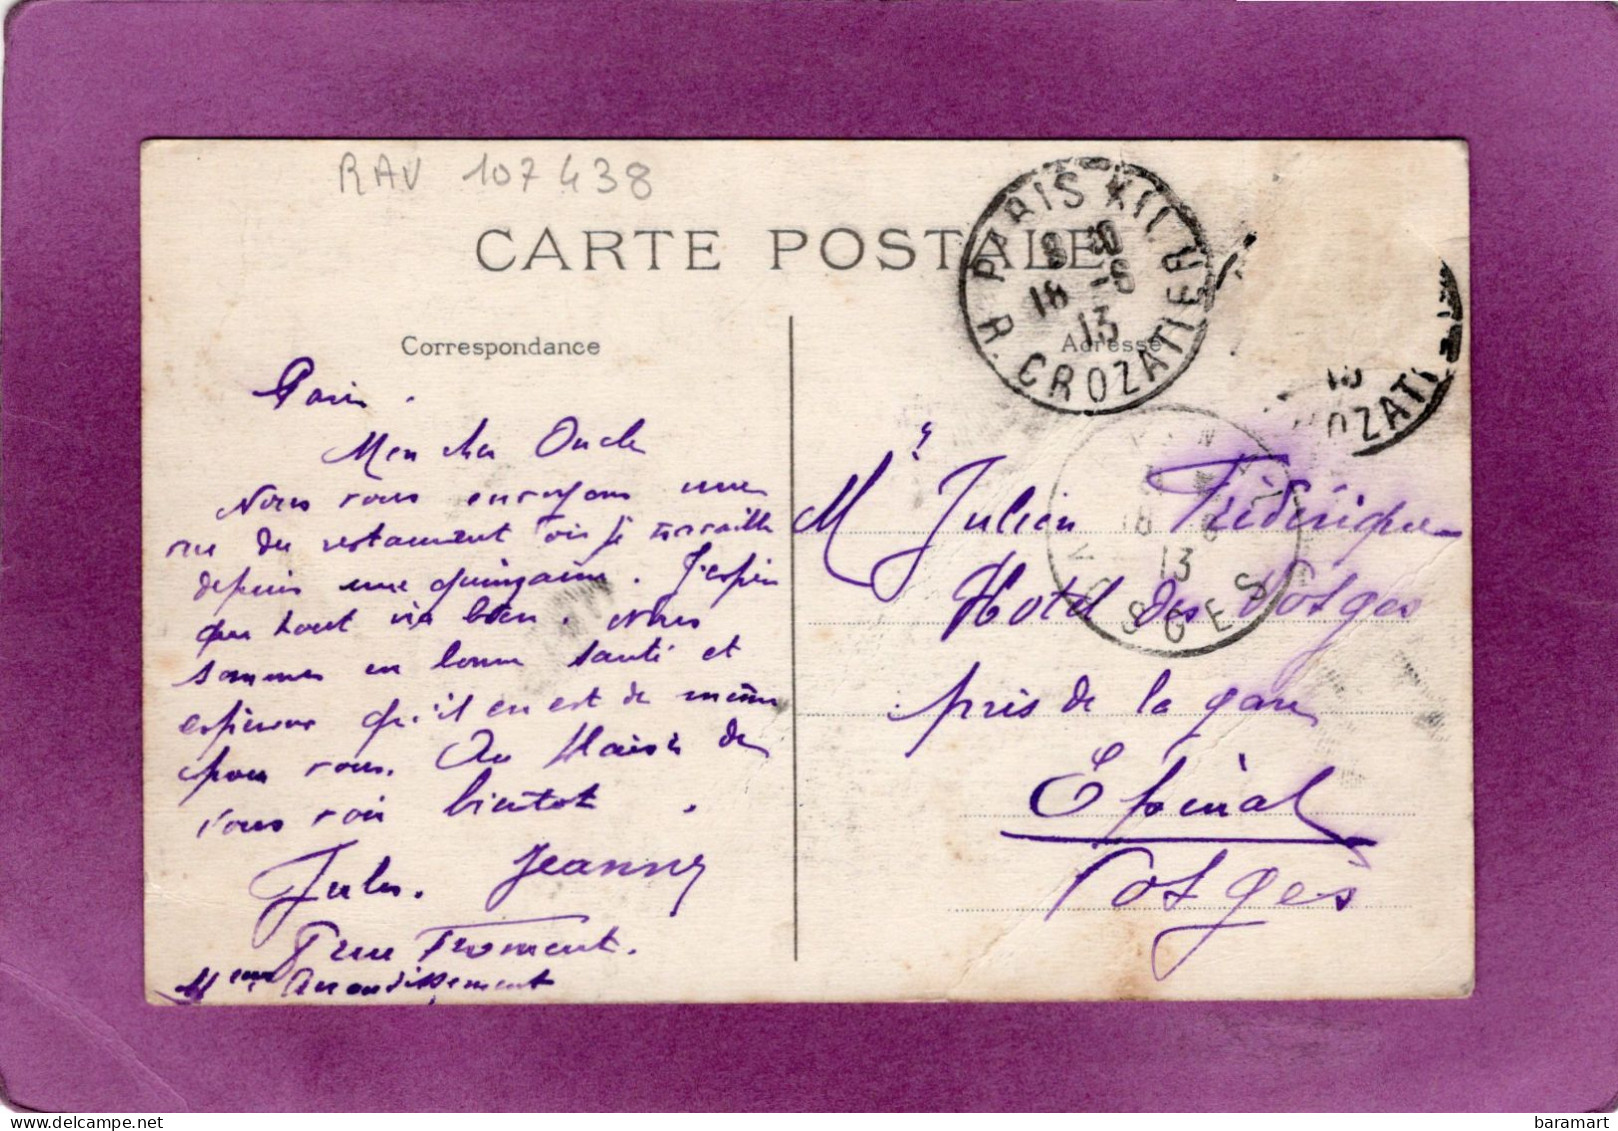 RAV 107438
CARTE POSTALE
PARIS XII. R. CROZATIER
8 30
18 -6
13
Correspondance
Adresse
Paris.
Mon cher Oncle
Nous vous envoyons une
vue du restaurant où je travaille
depuis une quinzaine. J'espère
que tout va bien. Nous
sommes en bonne santé et
espérons qu'il en est de même
pour vous. Au plaisir de
vous voir bientôt.
Jules. Jeanne
rue Froment.
11eme Arrondissement
OZATI
18
13
VOSGES
Mr Julien Frédérique
Hotel des Vosges
près de la gare
Épinal
Vosges
baramart